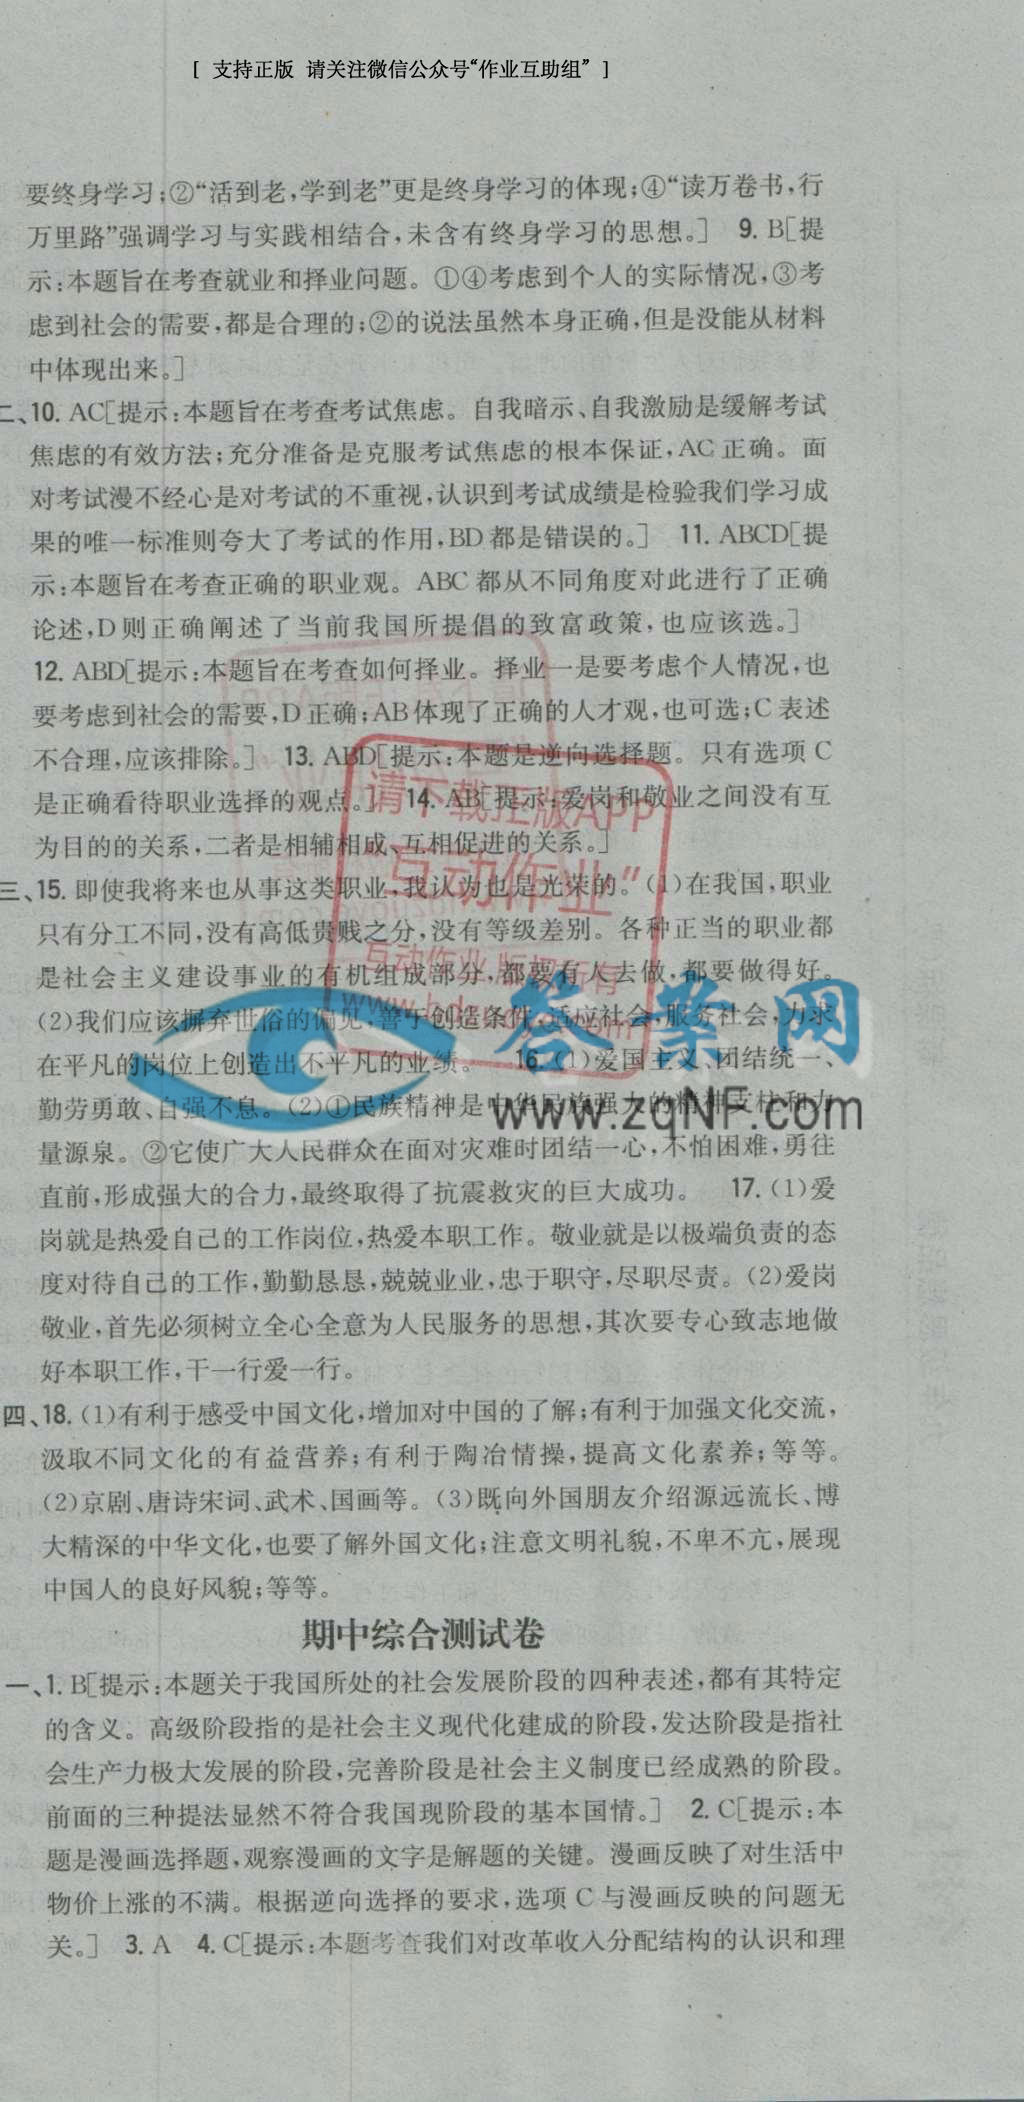 [ 支持正版 请关注微信公众号“作业互助组” ]
要终身学习;②“活到老,学到老”更是终身学习的体现;④“读万卷书,行
万里路”强调学习与实践相结合,未含有终身学习的思想。] 9. B[提
示:本题旨在考查就业和择业问题。①④考虑到个人的实际情况,③考
虑到社会的需要,都是合理的;②的说法虽然本身正确,但是没能从材料
中体现出来。]
二、10. AC[提示:本题旨在考查考试焦虑。自我暗示、自我激励是缓解考试
焦虑的有效方法;充分准备是克服考试焦虑的根本保证,AC正确。面
对考试漫不经心是对考试的不重视,认识到考试成绩是检验我们学习成
果的唯一标准则夸大了考试的作用,BD都是错误的。] 11. ABCD[提
示:本题旨在考查正确的职业观。ABC都从不同角度对此进行了正确
论述,D则正确阐述了当前我国所提倡的致富政策,也应该选。]
12. ABD[提示:本题旨在考查如何择业。择业一是要考虑个人情况,也
要考虑到社会的需要,D正确;AB体现了正确的人才观,也可选;C表述
不合理,应该排除。] 13. ABD[提示:本题是逆向选择题。只有选项C
是正确看待职业选择的观点。] 14. AB[提示:爱岗和敬业之间没有互
为目的的关系,二者是相辅相成、互相促进的关系。]
三、15. 即使我将来也从事这类职业,我认为也是光荣的。(1)在我国,职业
只有分工不同,没有高低贵贱之分,没有等级差别。各种正当的职业都
是社会主义建设事业的有机组成部分,都要有人去做,都要做得好。
(2)我们应该摒弃世俗的偏见,善于创造条件,适应社会,服务社会,力求
在平凡的岗位上创造出不平凡的业绩。 16. (1)爱国主义、团结统一、
勤劳勇敢、自强不息。(2)①民族精神是中华民族强大的精神支柱和力
量源泉。②它使广大人民群众在面对灾难时团结一心,不怕困难,勇往
直前,形成强大的合力,最终取得了抗震救灾的巨大成功。 17. (1)爱
岗就是热爱自己的工作岗位,热爱本职工作。敬业就是以极端负责的态
度对待自己的工作,勤勤恳恳,兢兢业业,忠于职守,尽职尽责。(2)爱岗
敬业,首先必须树立全心全意为人民服务的思想,其次要专心致志地做
好本职工作,干一行爱一行。
四、18. (1)有利于感受中国文化,增加对中国的了解;有利于加强文化交流,
汲取不同文化的有益营养;有利于陶冶情操,提高文化素养;等等。
(2)京剧、唐诗宋词、武术、国画等。(3)既向外国朋友介绍源远流长、博
大精深的中华文化,也要了解外国文化;注意文明礼貌,不卑不亢,展现
中国人的良好风貌;等等。
期中综合测试卷
一、1. B[提示:本题关于我国所处的社会发展阶段的四种表述,都有其特定
的含义。高级阶段指的是社会主义现代化建成的阶段,发达阶段是指社
会生产力极大发展的阶段,完善阶段是社会主义制度已经成熟的阶段。
前面的三种提法显然不符合我国现阶段的基本国情。] 2. C[提示:本
题是漫画选择题,观察漫画的文字是解题的关键。漫画反映了对生活中
物价上涨的不满。根据逆向选择的要求,选项C与漫画反映的问题无
关。] 3. A 4. C[提示:本题考查我们对改革收入分配结构的认识和理
请下载正版APP
“互动作业”
互动作业 版权所有
答案网
www.zqNF.com